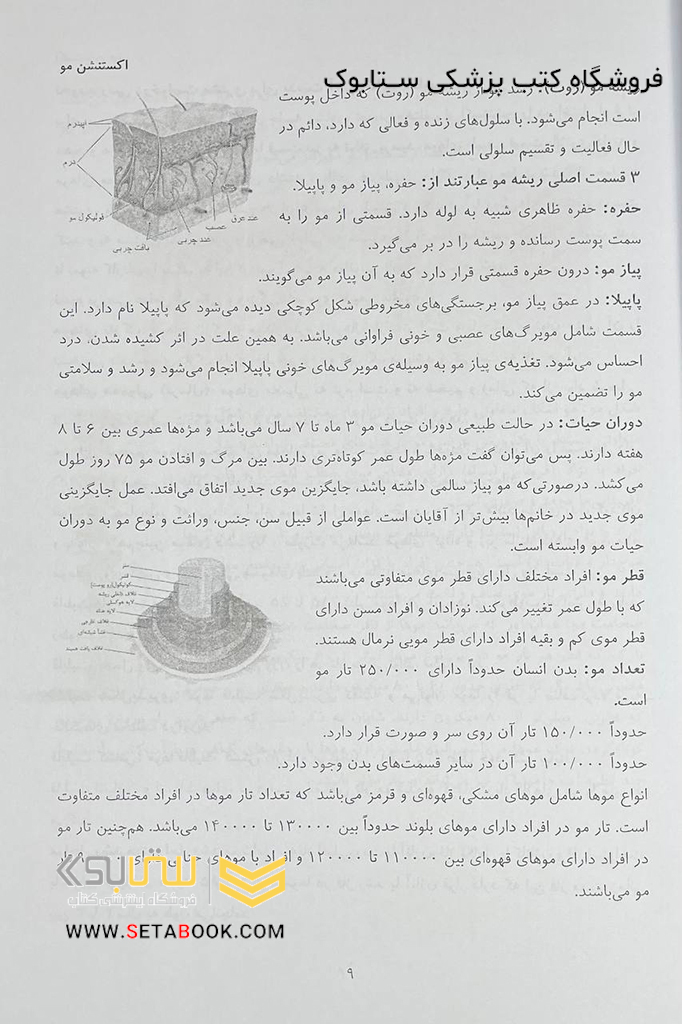 اکستنشن مو
فروشگاه کتب پزشکی ستابوک
ریشه مو (روت): رشد مو از ریشه مو (روت) که داخل پوست
است انجام می‌شود. با سلول‌های زنده و فعالی که دارد، دائم در
حال فعالیت و تقسیم سلولی است.
۳ قسمت اصلی ریشه مو عبارتند از: حفره، پیاز مو و پاپیلا.
حفره: حفره ظاهری شبیه به لوله دارد. قسمتی از مو را به
سمت پوست رسانده و ریشه را در بر می‌گیرد.
اپیدرم
درم
فولیکول مو
بافت چربی
غدد چربی
عصب
غدد عرق
پیاز مو: درون حفره قسمتی قرار دارد که به آن پیاز مو می‌گویند.
پاپیلا: در عمق پیاز مو، برجستگی‌های مخروطی شکل کوچکی دیده می‌شود که پاپیلا نام دارد. این
قسمت شامل مویرگ‌های عصبی و خونی فراوانی می‌باشد. به همین علت در اثر کشیده شدن، درد
احساس می‌شود. تغذیه‌ی پیاز مو به وسیله‌ی مویرگ‌های خونی پاپیلا انجام می‌شود و رشد و سلامتی
مو را تضمین می‌کند.
دوران حیات: در حالت طبیعی دوران حیات مو ۳ ماه تا ۷ سال می‌باشد و مژه‌ها عمری بین ۶ تا ۸
هفته دارند. پس می‌توان گفت مژه‌ها طول عمر کوتاه‌تری دارند. بین مرگ و افتادن مو ۷۵ روز طول
می‌کشد. درصورتی‌که مو پیاز سالمی داشته باشد، جایگزین موی جدید اتفاق می‌افتد. عمل جایگزینی
موی جدید در خانم‌ها بیش‌تر از آقایان است. عواملی از قبیل سن، جنس، وراثت و نوع مو به دوران
حیات مو وابسته است.
قطر مو: افراد مختلف دارای قطر موی متفاوتی می‌باشند
که با طول عمر تغییر می‌کند. نوزادان و افراد مسن دارای
قطر موی کم و بقیه افراد دارای قطر مویی نرمال هستند.
مغز
قشر
کوتیکول(رو پوست)
غلاف داخلی ریشه
لایه هوکسلی
لایه هنله
غلاف خارجی
غشأ شیشه‌ای
غلاف بافت همبند
تعداد مو: بدن انسان حدوداً دارای ۲۵۰/۰۰۰ تار مو
است.
حدوداً ۱۵۰/۰۰۰ تار آن روی سر و صورت قرار دارد.
حدوداً ۱۰۰/۰۰۰ تار آن در سایر قسمت‌های بدن وجود دارد.
انواع موها شامل موهای مشکی، قهوه‌ای و قرمز می‌باشد که تعداد تار موها در افراد مختلف متفاوت
است. تار مو در افراد دارای موهای بلوند حدوداً بین ۱۳۰۰۰۰ تا ۱۴۰۰۰۰ می‌باشد. هم‌چنین تار مو
در افراد دارای موهای قهوه‌ای بین ۱۱۰۰۰۰ تا ۱۲۰۰۰۰ و افراد با موهای تار
مو می‌باشند.
ستابوک
فروشگاه اینترنتی کتاب
WWW.SETABOOK.COM
۹